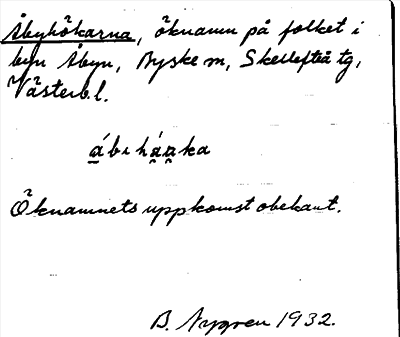 Åbyhökarna, öknamn på folket i
byn Åbyn, Byske sn, Skellefteå tg,
Västerb. l.
Öknamnets uppkomst obekant.
B. Nygren 1932.